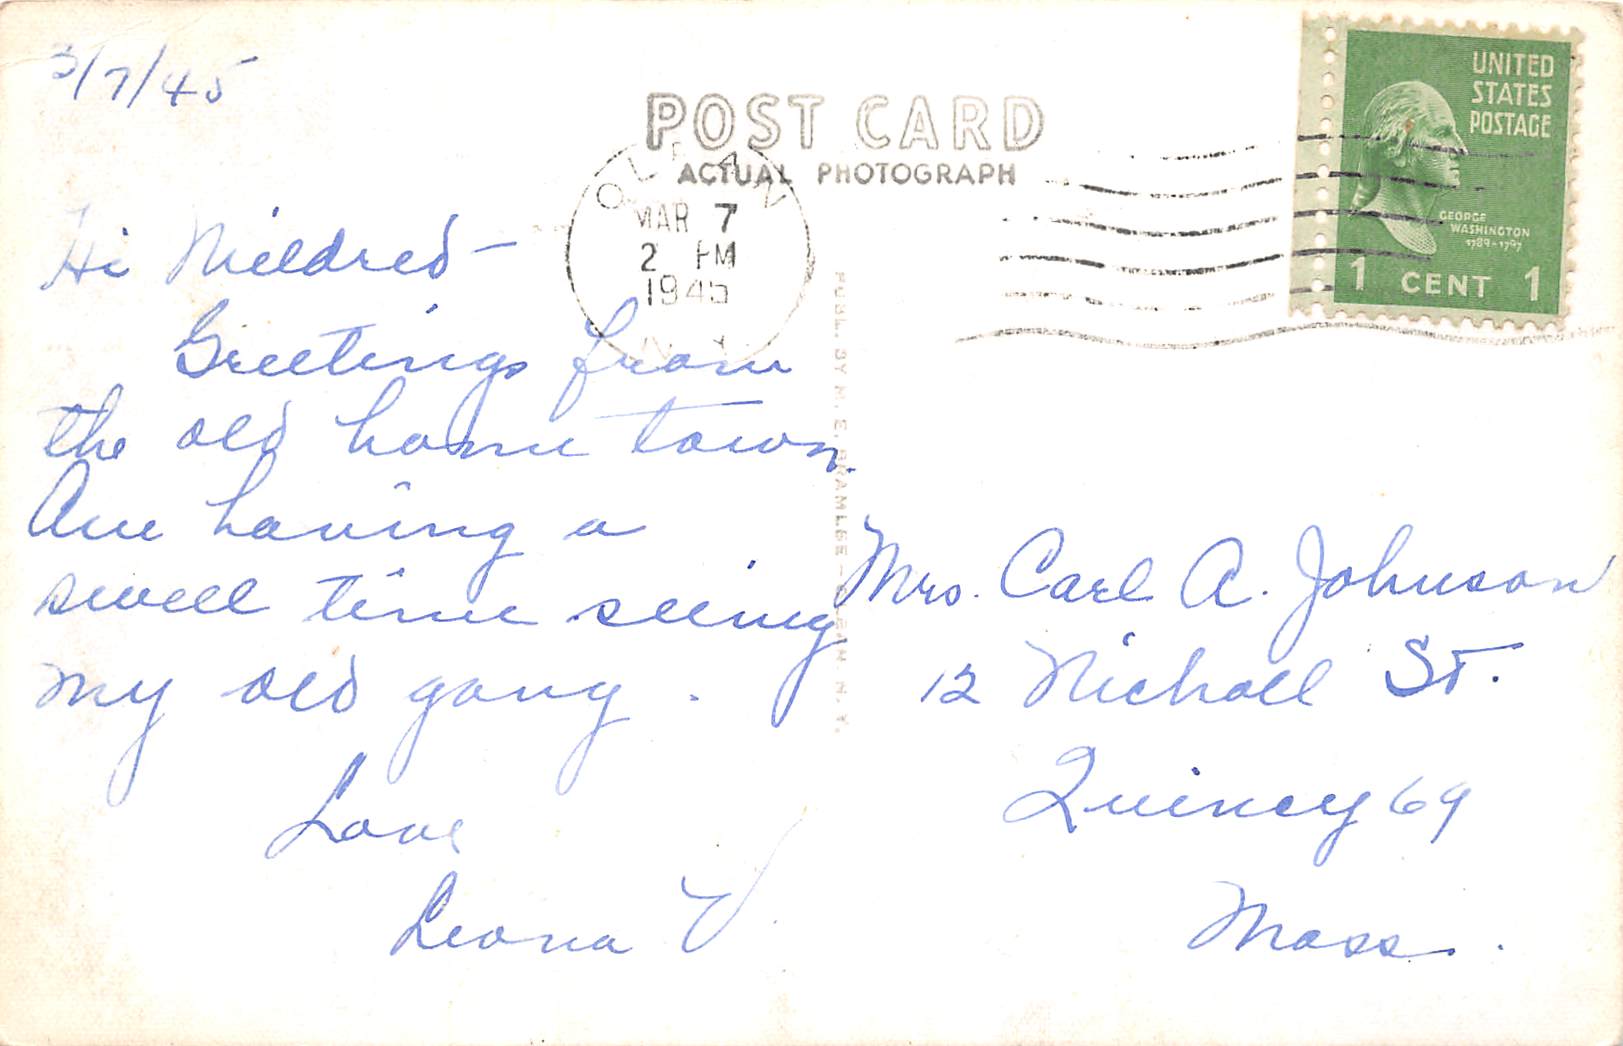 3/7/45
POST CARD
ACTUAL PHOTOGRAPH
OLEAN
MAR 7
2 PM
1945
N.Y.
UNITED
STATES
POSTAGE
GEORGE
WASHINGTON
1789-1797
1 CENT 1
Hi Mildred -
Greetings from
the old home town.
Am having a
swell time seeing
my old gang.
Love
Leona V
PUBL. BY M. E. BRAMLEE - OLEAN N. Y.
Mrs. Carl A. Johnson
12 Nicholl St.
Quincy 69
Mass.